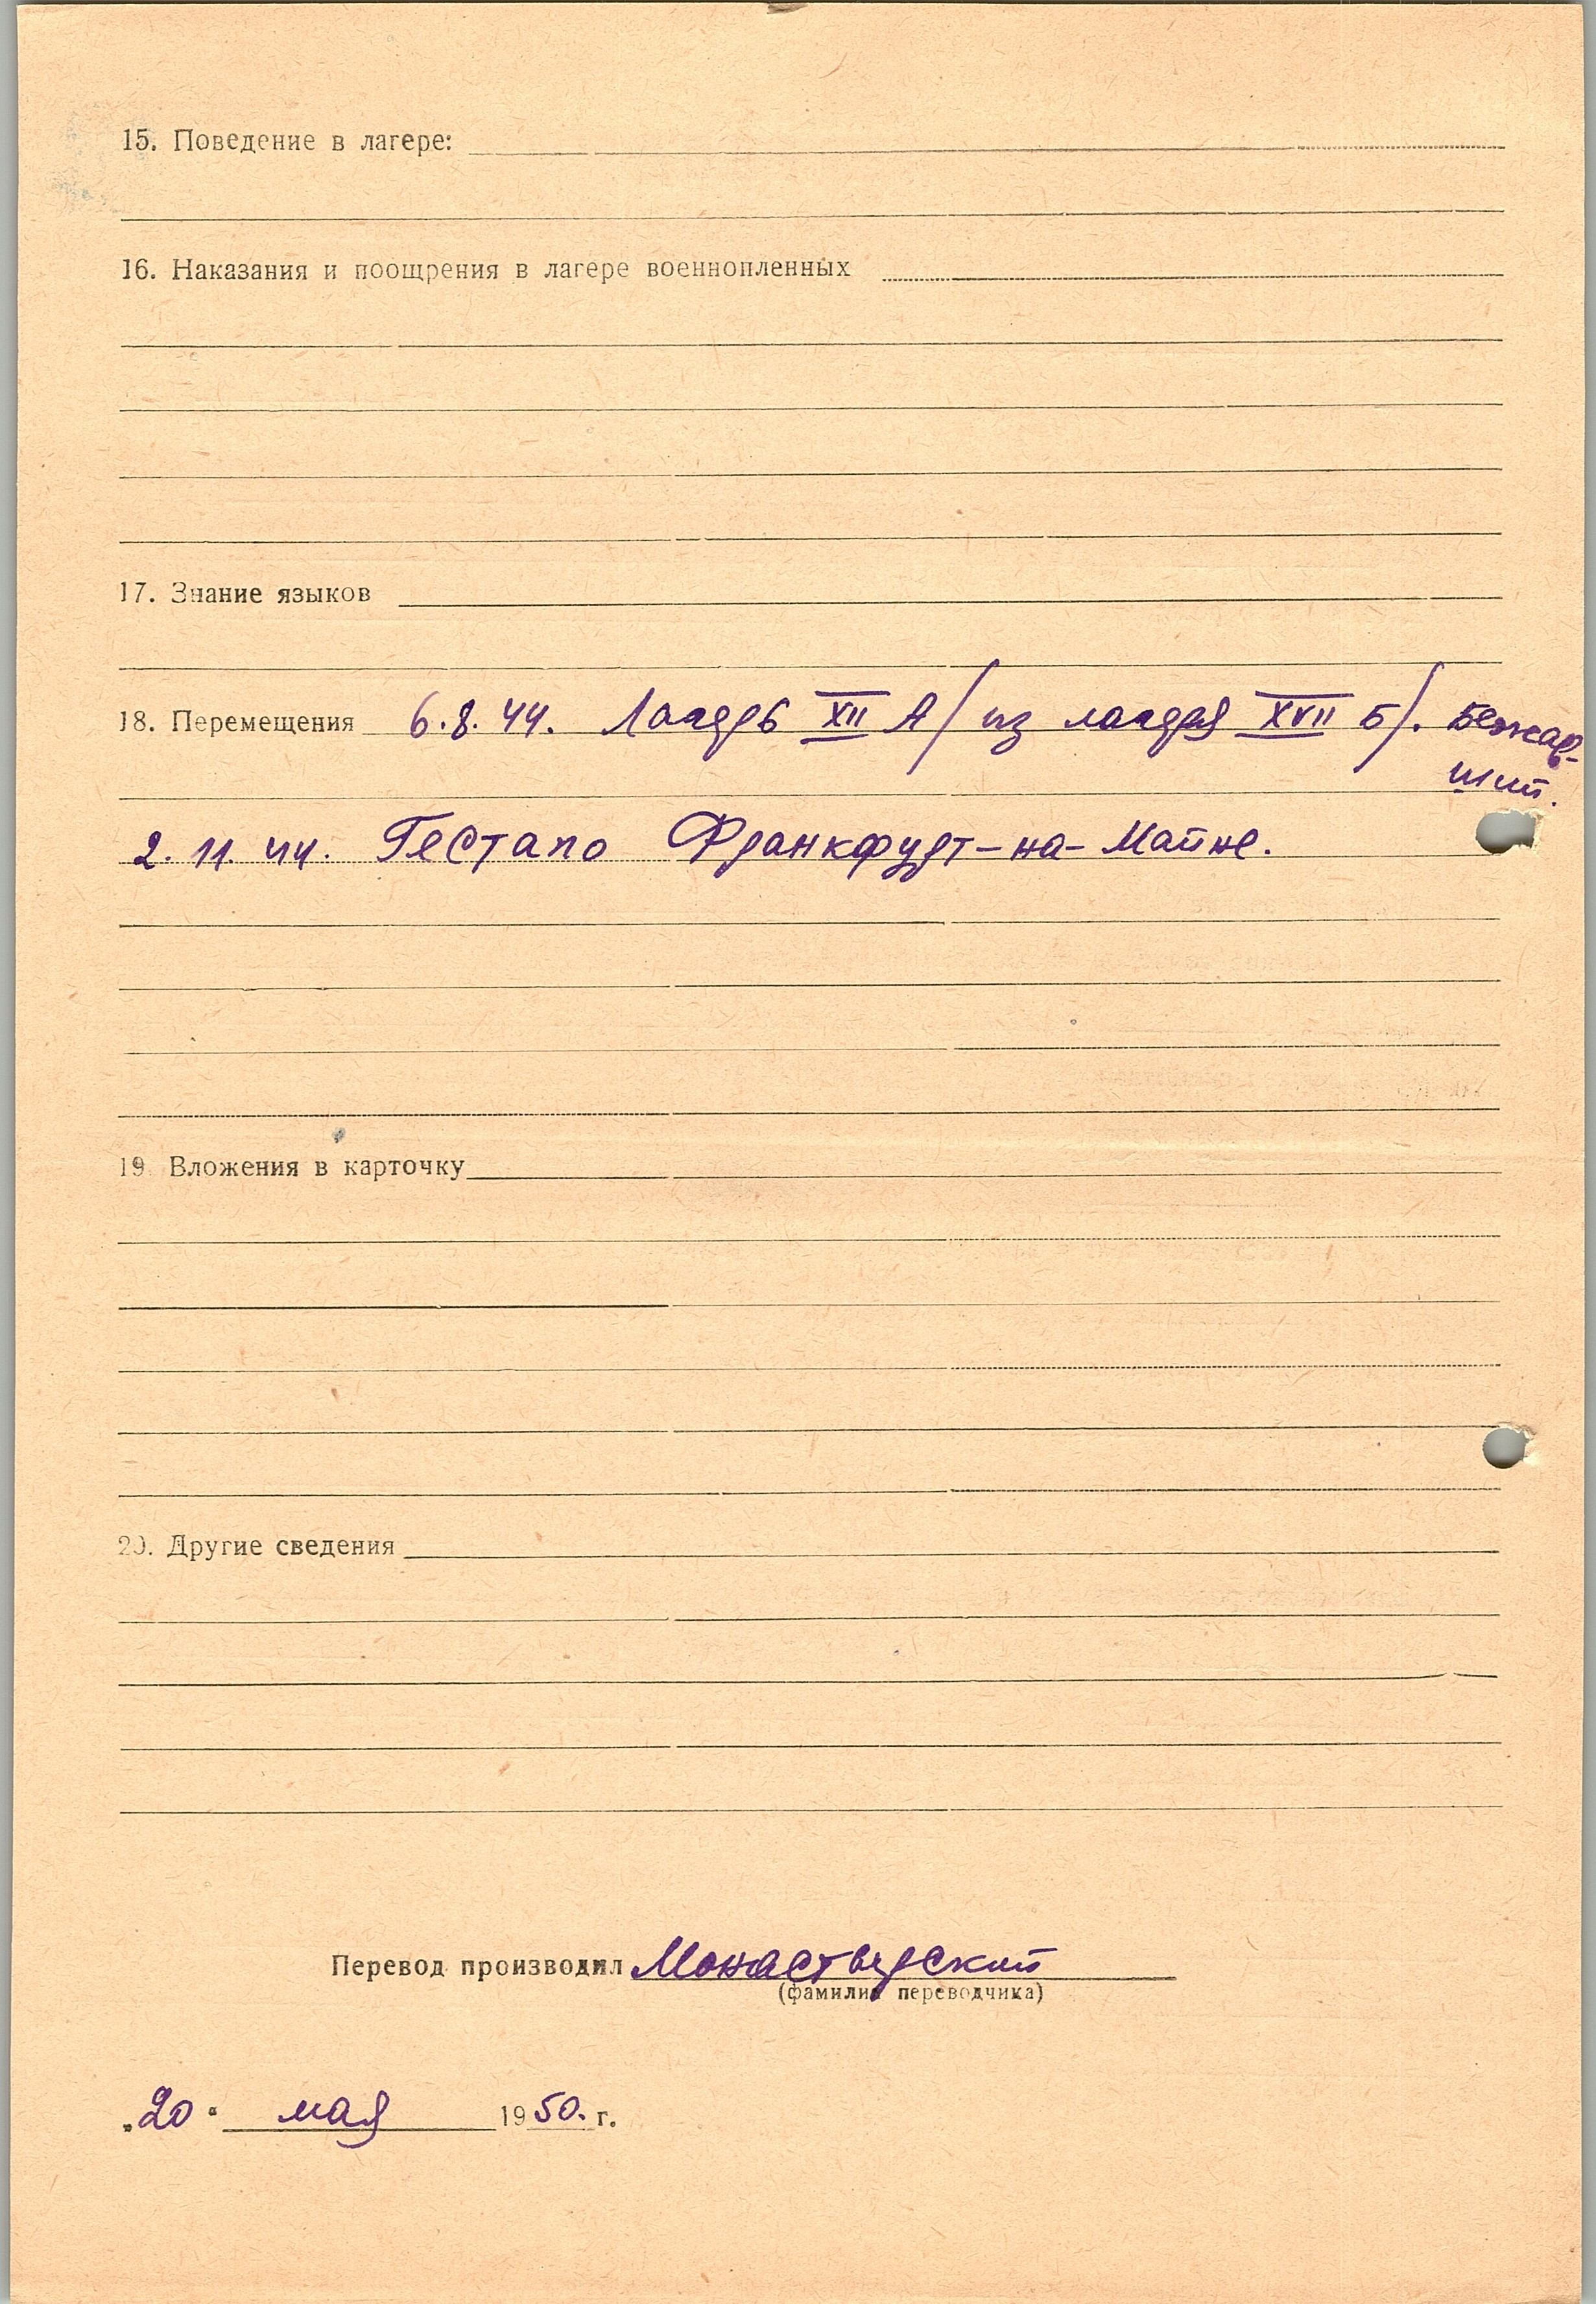 15. Поведение в лагере:
16. Наказания и поощрения в лагере военнопленных
17. Знание языков
18. Перемещения 6.8.44. Лагерь XII А/ из лагеря XVII Б/. Бежав-
ший.
2.11.44. Гестапо Франкфурт-на-Майне.
19. Вложения в карточку
20. Другие сведения
Перевод производил Монастырский
(фамилия переводчика)
„20“ мая 1950. г.